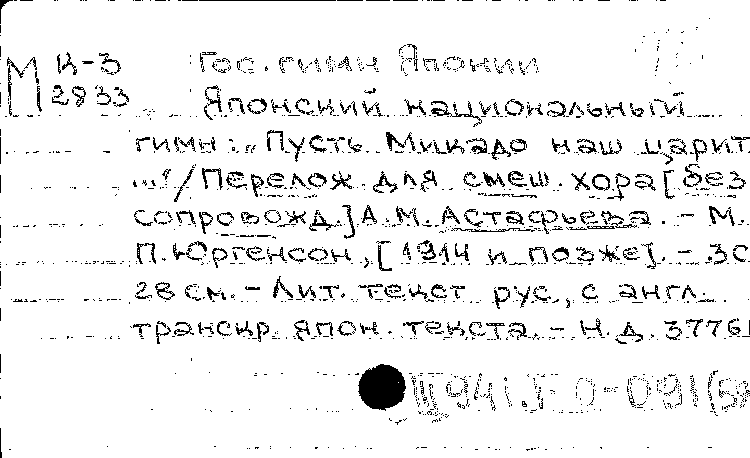 М К-3 Гос. гимн Японии
2933 Японский национальный
гимн: „Пусть Микадо наш царит
..."/Перелож. для смеш. хора [без
сопровожд.] А.М. Астафьева. - М.
П. Юргенсон, [1914 и позже]. - 3с
28 см. - Лит. текст рус., с англ.
транскр. япон. текста. - Н.д. 3776